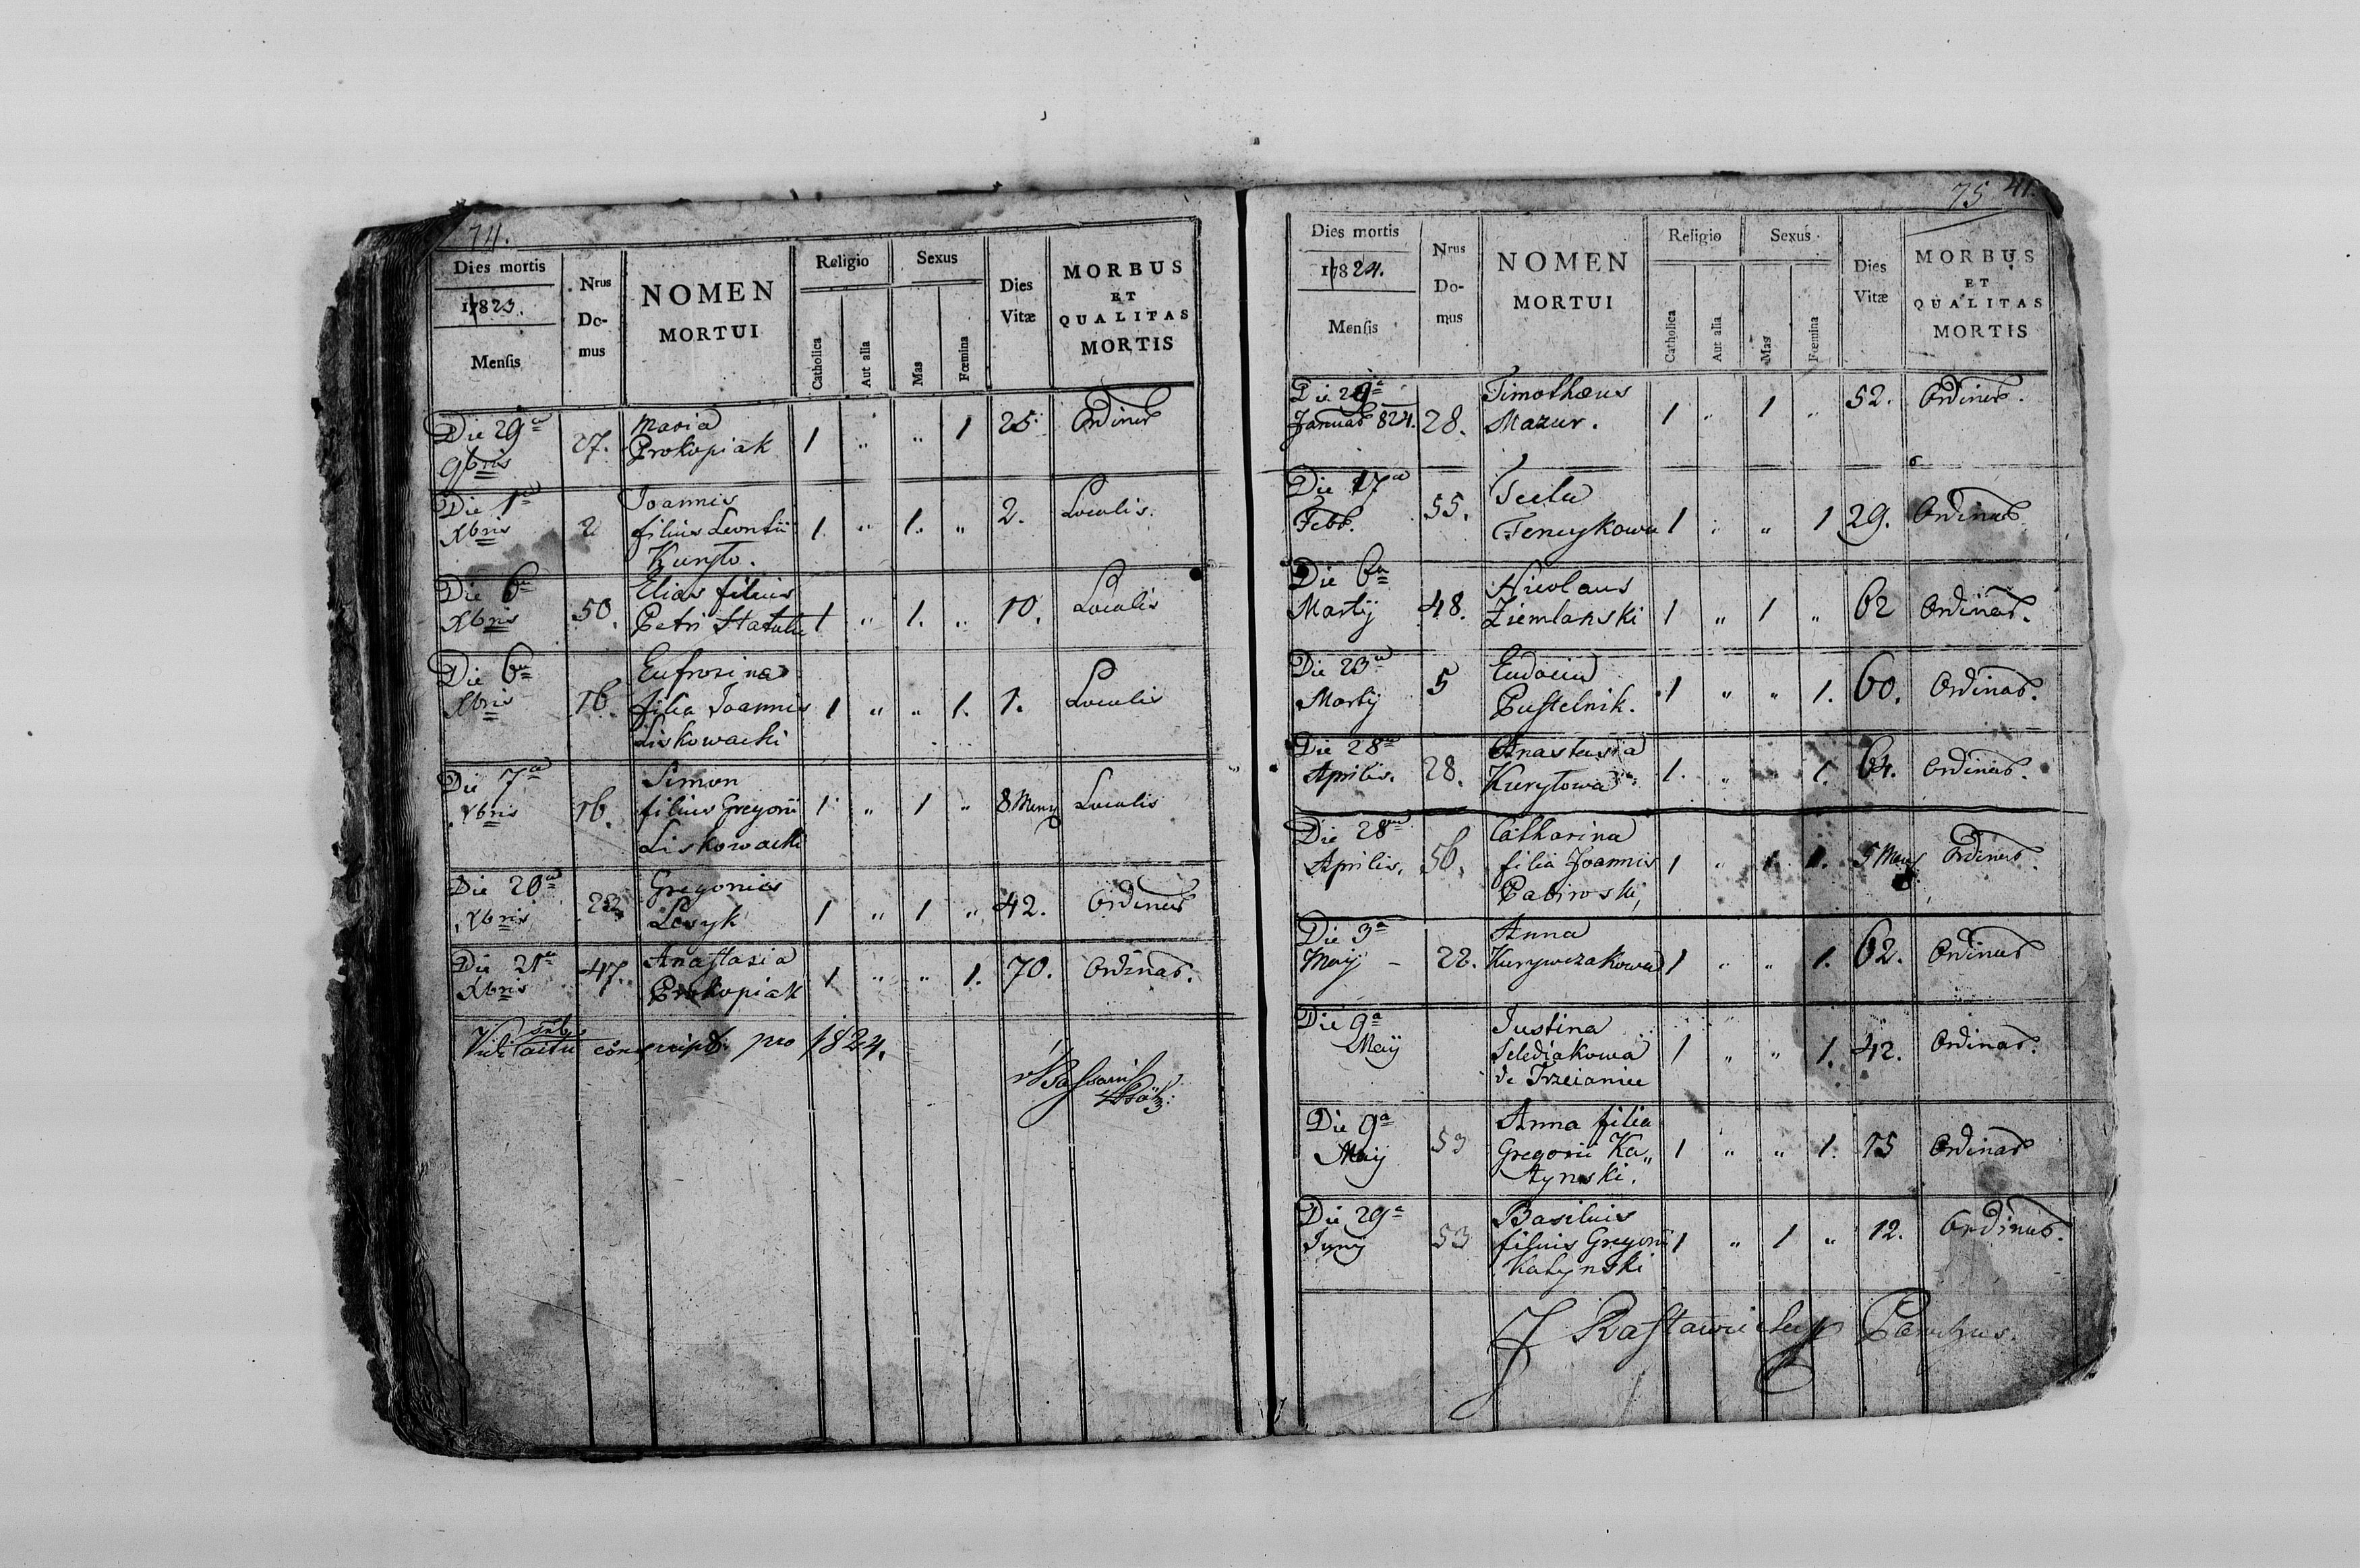 74.
Dies mortis
1823.
Mensis
Nrus
Do-
mus
NOMEN
MORTUI
Religio
Catholica
Aut alia
Sexus
Mas
Fœmina
Dies
Vitæ
MORBUS
ET
QUALITAS
MORTIS
Die 29a 9bris 27. Maria Prokopiak 1 " " 1 25. Ordinar
Die 1a Xbris 2 Joannis filius Leontii 1. " 1. " 2. Localis.
Die 6a Xbris 50. Elias filius Petri 1 " 1. " 10. Localis
Die 6a Xbris 16. Eufrosina filia Joannis Liskowacki 1 " " 1. 1. Localis
Die 7a Xbris 16. Simon filius Gregorii Liskowacki 1 " 1 " 8 Localis
Die 20a Xbris Gregorius Lesyk 1 " 1 " 42. Ordinar
Die 21a Xbris 47. Anastasia Prokopiak 1 " " 1. 70. Ordinar.
pro 1824.
75 41.
Dies mortis
1824.
Mensis
Nrus
Do-
mus
NOMEN
MORTUI
Religio
Catholica
Aut alia
Sexus
Mas
Fœmina
Dies
Vitæ
MORBUS
ET
QUALITAS
MORTIS
Die 29a Januar 824. 28. Timothæus Mazur. 1 " 1 " 52. Ordinar.
Die 17a Febr. 55. Tecla 1 " " 1 29. Ordinar
Die 6a Martij 48. Nicolaus Ziemlanski 1 " 1 " 62 Ordinar.
Die 23a Martij 5 Eudocia Pustelnik. 1 " " 1. 60. Ordinar.
Die 28a Aprilis. 28. Anastasia Kurytowa 1. " " 1. 64. Ordinar.
Die 28a Aprilis. 56. Catharina filia Joannis 1 " 1. Ordinar.
Die 3a Maij – 22. Anna Kurywczakowa 1 " " 1. 62. Ordinar
Die 9a Maij Justina Selediakowa de Trzcianiec 1 " " 1. 42. Ordinar.
Die 9a Maij 53 Anna filia Gregorii Ka„ tynski. 1 " " 1. 15 Ordinar
Die 29a Junij 53 Basilius filius Gregorii Katynski 1 " 1 " 12. Ordinar.
J Parochus.